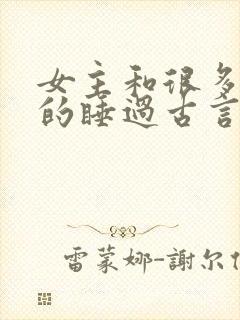 女主和很多
的睡過古言
雷蒙娜-謝尔